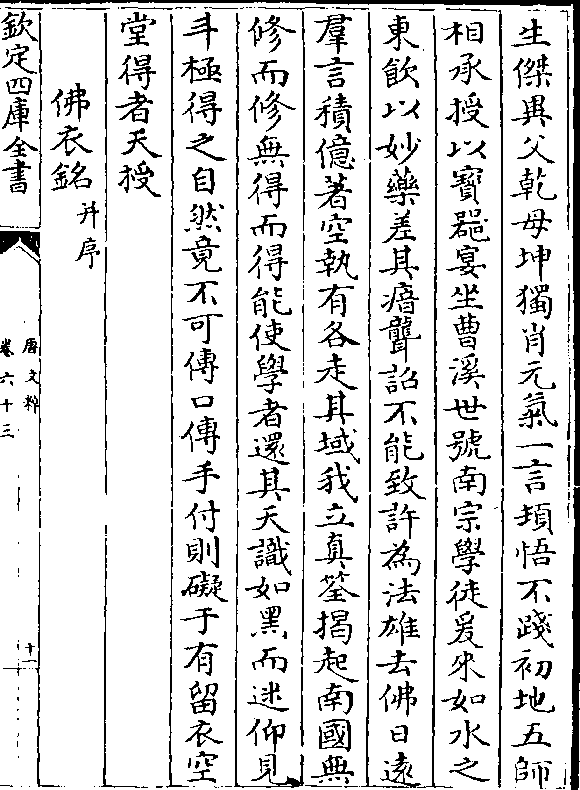 生傑異父乾母坤獨肖元氣一言頓悟不踐初地五師
相承授以寳器宴坐曹溪世號南宗學徒爰來如水之
東飲以妙藥差其瘖聾詔不能致許為法雄去佛日遠
羣言積億著空執有各走其域我立真筌揭起南國無
修而修無得而得能使學者還其天識如黑而迷仰見
斗極得之自然竟不可傳口傳手付則礙于有留衣空
堂得者天授
佛衣銘并序
欽定四庫全書
唐文粹
卷六十三
十一